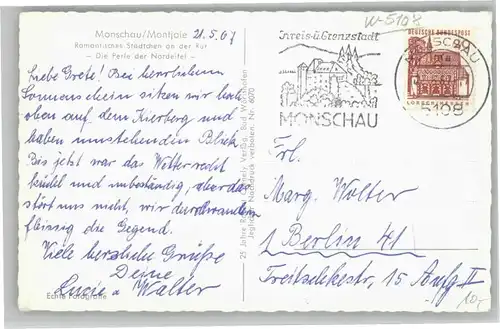 Monschau/Montjoie
Romantisches Städtchen an der Rur
– Die Perle der Nordeifel –
21.5.67
Liebe Grete! Bei herrlichem
Sonnenschein sitzen wir hoch
oben auf dem Kierberg und
haben umstehenden Blick.
Bis jetzt war das Wetter recht
kühl und unbeständig, aber das
stört uns nicht, wir durchwandern
fleissig die Gegend.
Viele herzliche Grüße
Deine
Lucie u Walter
Echte Fotografie
25 Jahre
Verlag, Bad
Nachdruck verboten. Nr. 6070
W-5108
Kreis-u.Grenzstadt
MONSCHAU
MONSCHAU
5108
DEUTSCHE BUNDESPOST
20
Frl.
Marg. Wolter
1 Berlin 41
Treitschkestr. 15 Aufg II
10,-